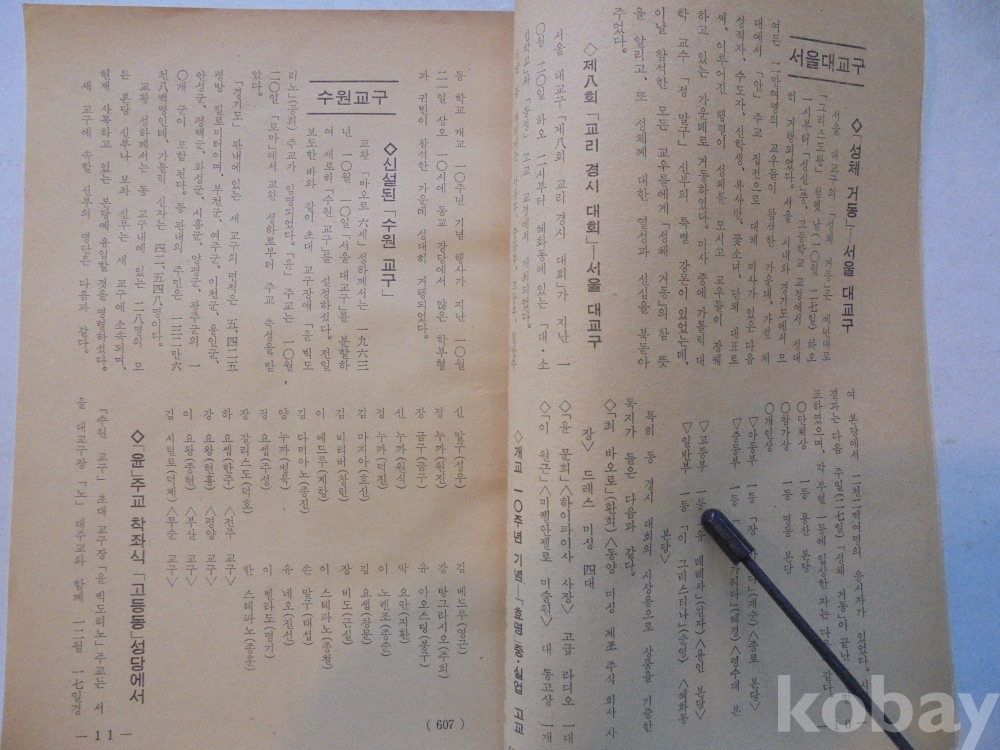 서울대교구
◇「성체 거동」─서울 대교구
서울 대교구의 「성체 거동」은 예년대로
「그리스도왕」 첨례날(一○월 二七일) 하오
히 거행되었다. 서울 시내와 경기도에서 모
여든 一만여명의 교우들이 참석한 가운데, 가설 제
대에서 「안」 주교 집전으로 대례 미사가 있은 다음
성직자, 수도자, 신학생, 복사단, 꽃소녀, 단체 대표로
써, 이루어진 행렬이 성체를 모시고 교우들이 장궤
하고 있는 가운데로 거동하였다. 미사 중에 가톨릭 대
학 교수 「정 말구」 신부의 특별 강론이 있었는데,
이날 참석한 모든 교우들에게 「성체 거동」의 참 뜻
을 알리고, 또 성체께 대한 열성과 신심을 북돋아
주었다.
◇제八회 「교리 경시 대회」─서울 대교구
서울 대교구 「제八회 교리 경시 대회」가 지난 一
○월 二○일 하오 二시부터 혜화동에 있는 「대·소
여 본당에서 一천二백여명의 응시자가 있었다. 시
결과는 다음 주일(二七일) 「성체 거동」이 끝난
표하였으며, 각 부별 一등에 입상한 자는 다음과 같다.
○단체상 一등 용산 본당
○참가상 一등 명동 본당
○개인상
▽아동부 一등 「장
(재순)〈종로 본당〉
▽중등부 一등
(혜경)〈명수대 본
당〉
▽고등부 一등 「유 데레사」(덕자)〈용인 본당〉
▽일반부 一등 「이 그리스띠나」(순영)〈혜화동
본당〉
특히 동 경시 대회의 시상용으로 상품을 기증한
독지가 들은 다음과 같다.
◇「최 바오로」(환희)〈동양 미싱 제조 주식 회사 사
장〉 드레스 미싱 四대
◇「윤 문희」〈하이파이사 사장〉 고급 라디오 一대
◇「이 원근」〈미켈안젤로 미술원〉 대 동고상 一개
◇개교 一○주년 기념─「효명」중·실업 고교
동 학교 개교 一○주년 기념 행사가 지난 一○월
二一일 상오 一○시에 동교 강당에서 많은 학부형
과 귀빈이 참석한 가운데 성대히 거행되었다.
수원교구
◇신설된 「수원 교구」
교황 「바오로 六세」 성하께서는 一九六三
년 一○월 一○일 「서울 대교구」를 분할하
여 새로히 「수원 교구」를 설정하셨다. 전일
보도한 바와 같이 초대 교구장에 「윤 빅도
리노」(공희) 주교가 임명되었다. 「윤」 주교는 一○월
二○일 「로마」에서 교황 성하로부터 주교 축성을 받
았다.
「경기도」 관내에 있는 새 교구의 면적은 五,四二五
평방 킬로미터이며, 부천군, 여주군, 이천군, 용인군,
안성군, 평택군, 화성군, 시흥군, 양평군, 광주군의 一
○개 군이 포함 된다. 동 관내의 주민은 一三二만六
천八백명인데, 가톨릭 신자는 四二,五四八명이다.
교황 성하께서는 동 교구내에 있는 二八명의 모
든 본당 신부나 보좌 신부는 새 교구에 소속되며,
현재 사목하고 있는 본당에 유임할 것을 명령하셨다.
새 교구에 속할 신부의 명단은 다음과 같다.
신 말구(성우)
정 누까(원진)
장 금구(금구)
신 누까(원식)
정 누까(덕진)
김 마지아(효신)
김 비리버(창린)
이 베드루(계항)
김 다미아노(동진)
양 누까(평묵)
정 요셉(주성)
장 갈리스도(덕호)
하 요셉(한주) 〈전주 교구〉
강 요왕(현홍) 〈평양 교구〉
이 요왕(종현) 〈부산 교구〉
김 시릴로(덕제) 〈무순 교구〉
김 베드루(영근)
강 방그라시오(주희)
유 아오스딩(봉구)
박 요안(지환)
이 노렌조(종순)
김 요셉(창문)
장 비도(근실)
이 스테파노(종철)
손 말구(태섭)
유 네오(진선)
이 벨라도(명기)
한 스테파노(종훈)
◇「윤」주교 착좌식 「고등동」성당에서
「수원 교구」 초대 교구장 「윤 빅도리노」 주교는 서
울 대교구장 「노」 대주교와 함께 一二월 一七일경
(607)
─11─
kobay